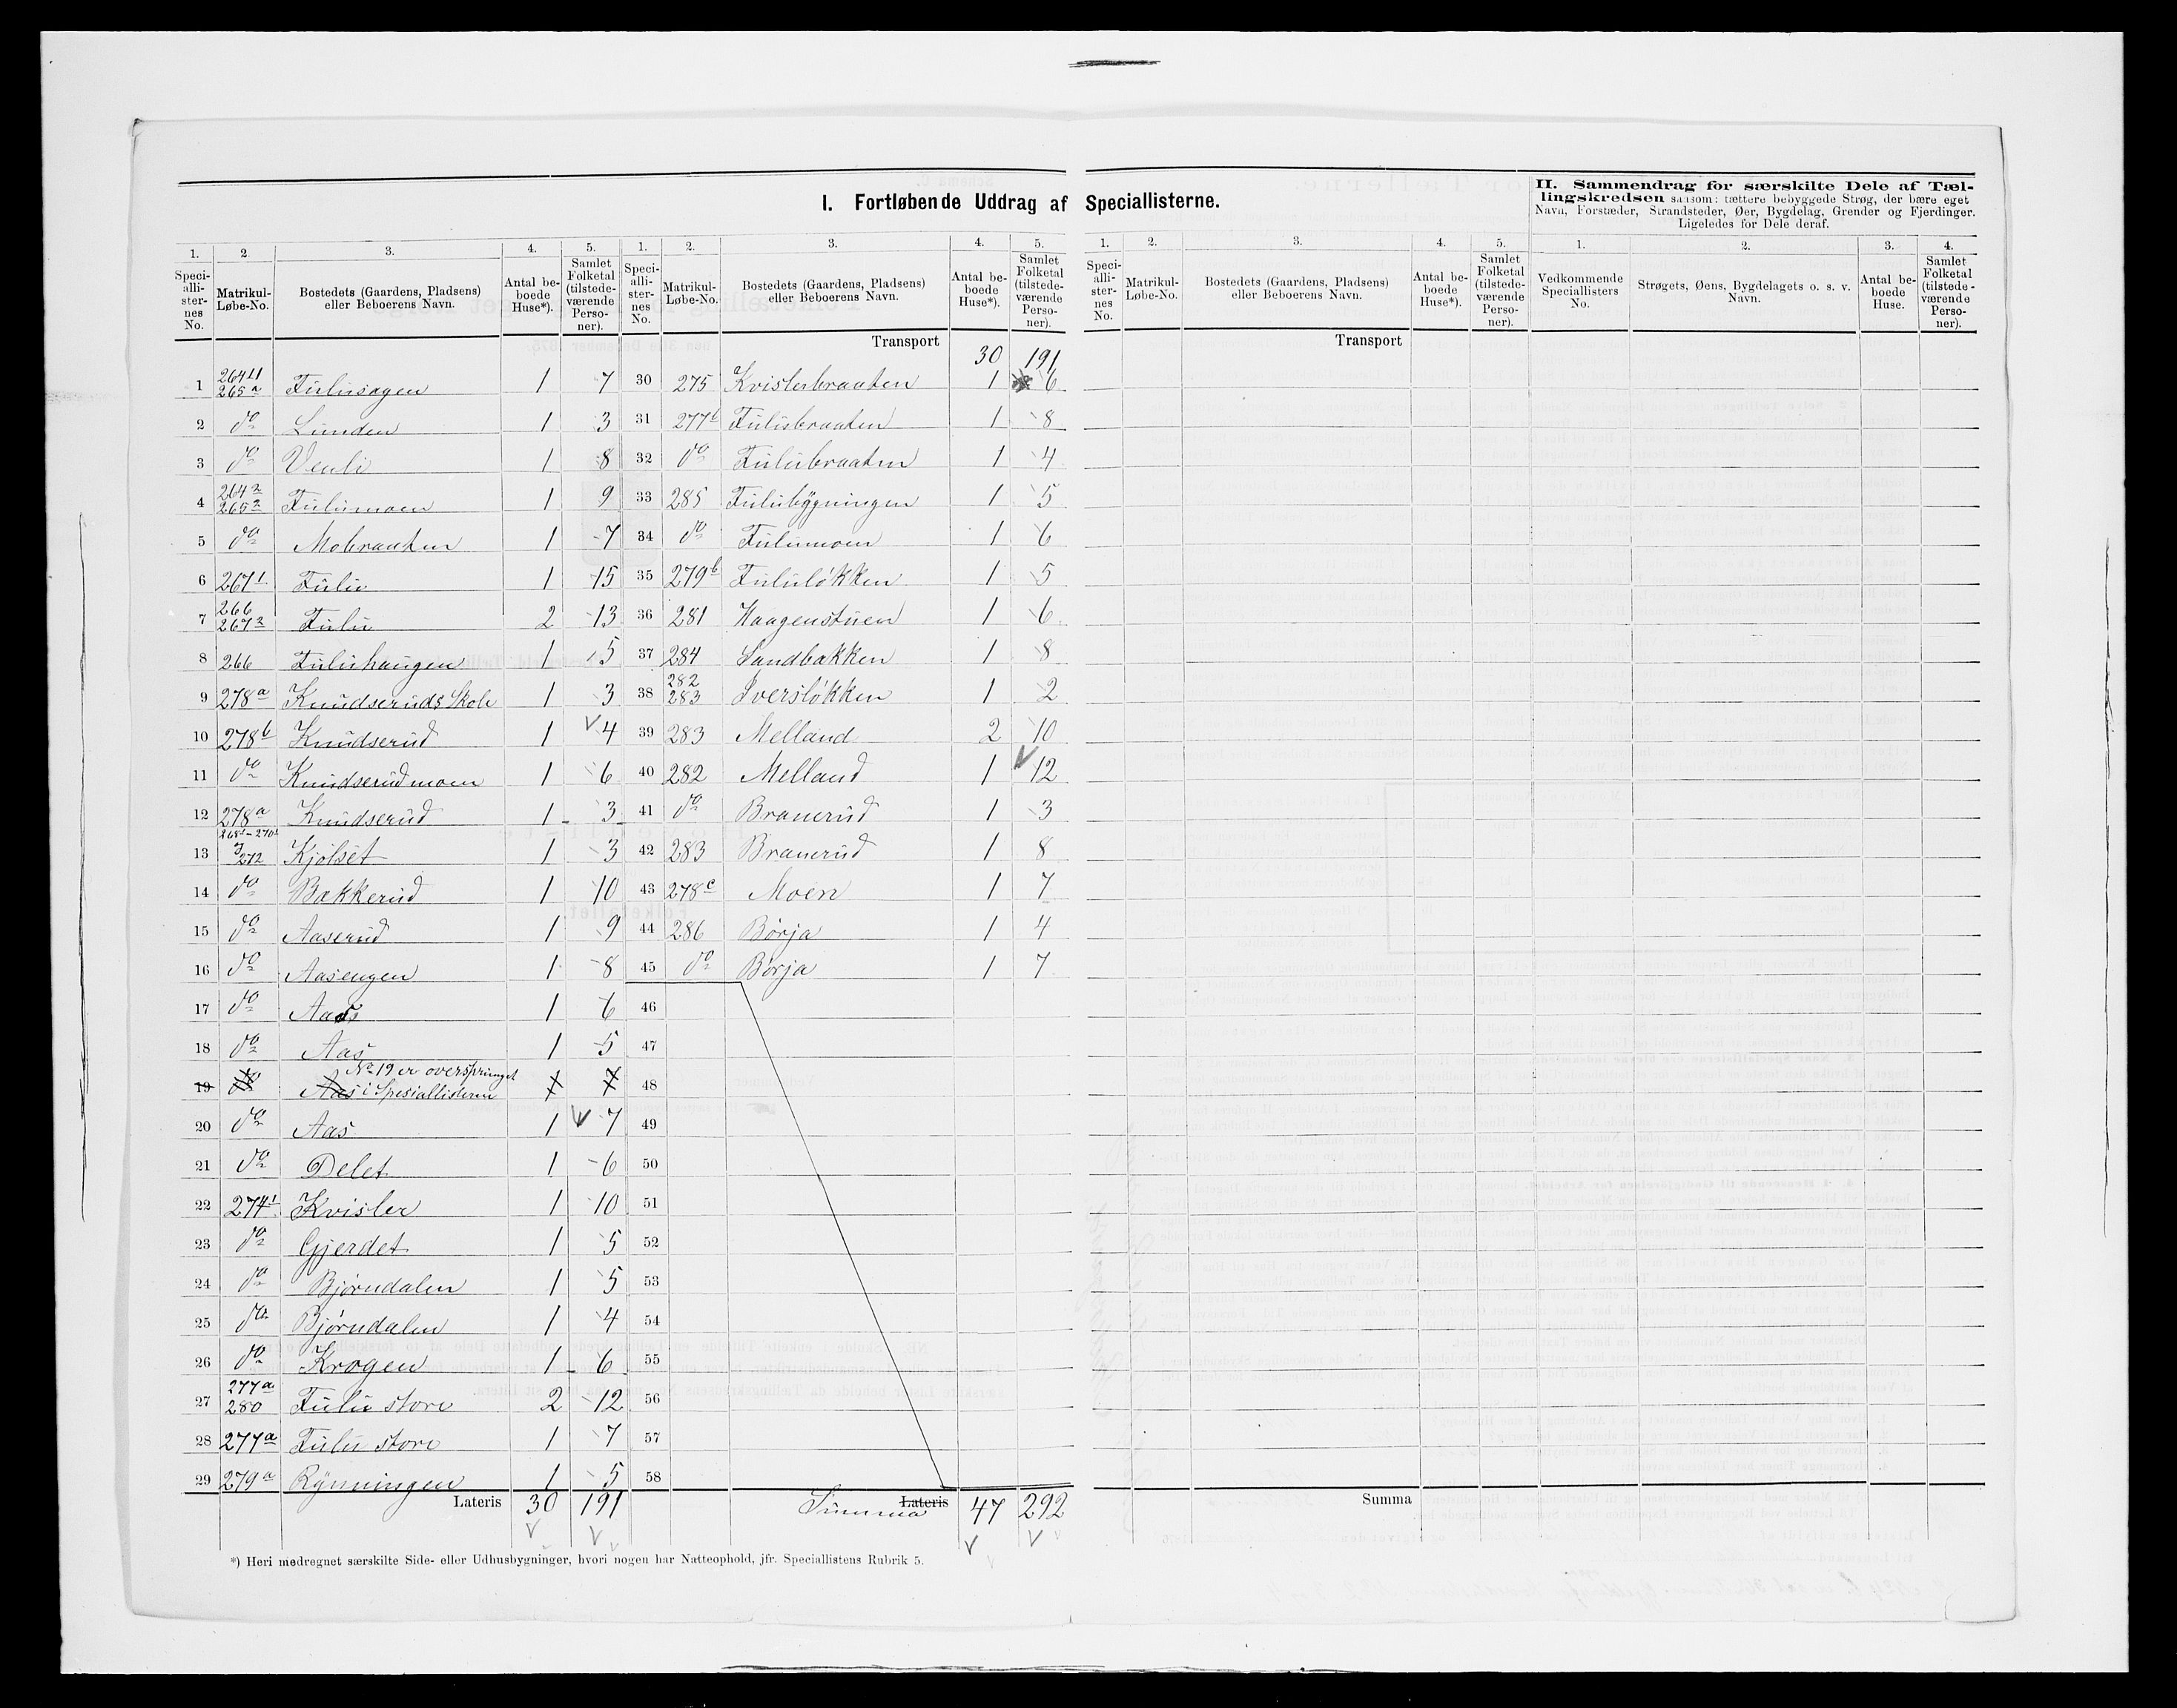 I. Fortløbende Uddrag af Speciallisterne.
II. Sammendrag for særskilte Dele af Tæl-
lingskredsen saasom: tættere bebyggede Strøg, der bære eget
Navn, Forstæder, Strandsteder, Øer, Bygdelag, Grender og Fjerdinger.
Ligeledes for Dele deraf.
1. 2. 3. 4. 5. 1. 2. 3. 4. 5. 1. 2. 3. 4. 5. 1. 2. 3. 4.
Speci-alli-ster-nes No. Matrikul-Løbe-No. Bostedets (Gaardens, Pladsens) eller Beboerens Navn. Antal be-boede Huse*). Samlet Folketal (tilstede-værende Perso-ner).
Speci-alli-ster-nes No. Matrikul-Løbe-No. Bostedets (Gaardens, Pladsens) eller Beboerens Navn. Antal be-boede Huse*). Samlet Folketal (tilstede-værende Perso-ner).
Speci-alli-ster-nes No. Matrikul-Løbe-No. Bostedets (Gaardens, Pladsens) eller Beboerens Navn. Antal be-boede Huse*). Samlet Folketal (tilstede-værende Perso-ner).
Vedkommende Speciallisters No. Strøgets, Øens, Bygdelagets o. s. v. Navn. Antal be-boede Huse. Samlet Folketal (tilstede-værende Perso-ner).
1 265a Fulusagen 1 7
2 do Lunden 1 3
3 do Venli 1 8
4 264 2 265 2 Fulumoen 1 9
5 do Mobraaten 1 7
6 267 1 Fulu 1 15
7 266 267 2 Fulu 2 13
8 266 Fuluhaugen 1 5
9 278a Knudseruds Skole 1 3
10 278b Knudserud 1 4
11 do Knudserudmoen 1 6
12 278a Knudserud 1 3
13 272 Kjølset 1 3
14 do Bakkerud 1 10
15 do Aaserud 1 9
16 do Aasengen 1 8
17 do Aas 1 6
18 do Aas 1 5
No 19 er oversprunget
19 do Aas i Spesiallisterne 1 7
20 do Aas 1 7
21 do Delet 1 6
22 274 1 Kvisler 1 10
23 do Gjerdet 1 5
24 do Bjørndalen 1 5
25 do Bjørndalen 1 4
26 do Krogen 1 6
27 277a 280 Fulu store 2 12
28 277a Fulu store 1 7
29 279a Rynningen 1 5
Lateris 30 191
Transport 30 191
30 275 Kvislerbraaten 1 6
31 277b Fulubraaten 1 8
32 do Fulubraaten 1 4
33 285 Fulubygningen 1 5
34 do Fulumoen 1 6
35 279b Fululøkken 1 5
36 281 Haagenstuen 1 6
37 284 Sandbakken 1 8
38 282 283 Iversløkken 1 2
39 283 Melland 2 10
40 282 Melland 1 12
41 do Branerud 1 3
42 283 Branerud 1 8
43 278c Moen 1 7
44 286 Børja 1 4
45 do Børja 1 7
46
47
48
49
50
51
52
53
54
55
56
57
58
Summa Lateris 47 292
Transport
Summa
*) Heri medregnet særskilte Side- eller Udhusbygninger, hvori nogen har Natteophold, jfr. Speciallistens Rubrik 5.